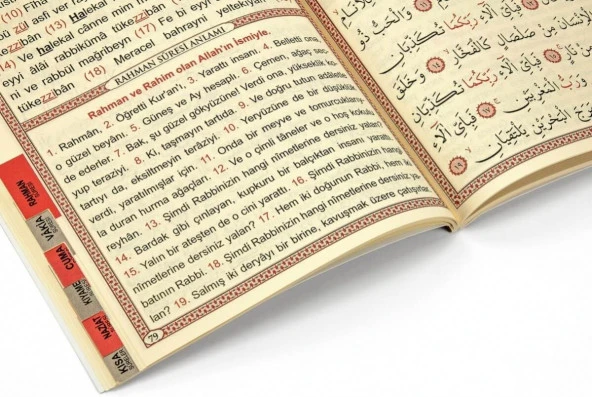 (10) Fiha
(12)
rabbikümâ tüke
âli ver rabbikümâ tüke
(14) Ve halekal cânne min
eyyi âlâi rabbikümâ tükezzibân
ve rabbül mağribeyn (17) Fe bi eyyi
tükezzibân (18) Meracel bahrayni yeltekıyân
RAHMAN SÛRESİ ANLAMI
Rahman ve Rahim olan Allah'ın İsmiyle.
1. Rahmân. 2. Öğretti Kur'an'ı. 3. Yarattı insanı. 4. Belletti ona,
o güzel beyânı. 5. Güneş ve Ay hesaplı. 6. Çemen, ağaç sec-
de ederler. 7. Bak, şu güzel gökyüzüne! Verdi ona, yükseklik ko-
yup teraziyi. 8. Ki, taşmayın tartıda. 9. Ve doğru tutun adâletle
tartıyı da, eksiltmeyin teraziyi. 10. Yeryüzüne de bir alçaklık
verdi, yaratılmışlar için. 11. Onda bir meyve ve tomurcuklany-
la duran hurma ağaçları. 12. Ve o çimli tâneler ve o hoş kokulu
reyhân. 13. Şimdi Rabbinizin hangi nîmetlerine dersiniz yalan?
14. Bardak gibi çınlayan, kupkuru bir balçıktan insanı yarattı.
15. Yalın bir ateşten de o cini yarattı. 16. Şimdi Rabbinizin hangi
nîmetlerine dersiniz yalan? 17. Hem iki doğunun Rabbi, hem iki
batının Rabbi. 18. Şimdi Rabbinizin hangi nîmetlerine dersiniz ya-
lan? 19. Salmış iki deryâyı bir birine, kavuşmak üzere çatışırlar.
79
RAHMAN
VAKIA
CUMA
KIYAME
NAZİAT
KISA
SURELER
وَالْحَبُّ ذُو
فَبِأَيِّ آلَاءِ رَبِّكُمَا تُكَذِّبَانِ
الْإِنْسَانَ مِنْ صَلْصَالٍ كَالْفَخَّارِ ﴿١٤﴾ وَخَلَقَ
مِنْ نَارٍ ﴿١٥﴾ فَبِأَيِّ آلَاءِ رَبِّكُمَا تُكَذِّبَانِ
وَرَبُّ الْمَغْرِبَيْنِ ﴿١٧﴾ فَبِأَيِّ آلَاءِ
مَرَجَ الْبَحْرَيْنِ يَلْتَقِيَانِ ﴿١٩﴾